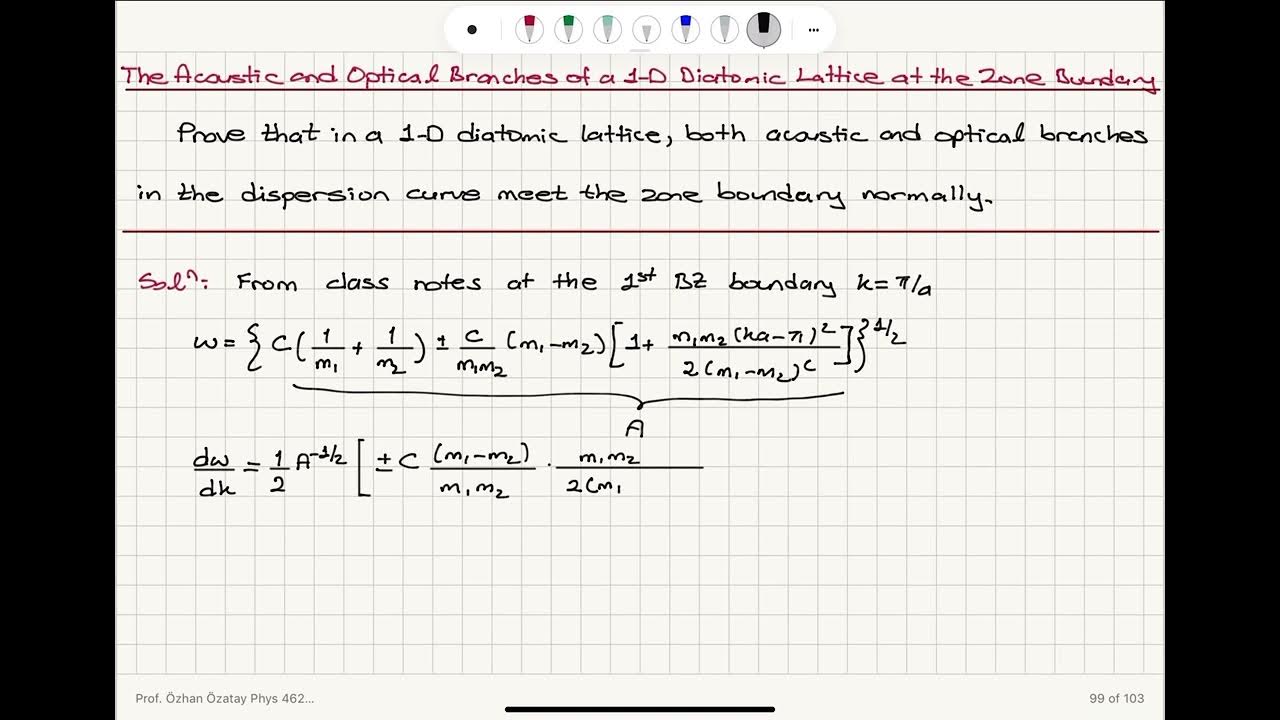 The Acoustic and Optical Branches of a 1-D Diatomic Lattice at the Zone Boundary
Prove that in a 1-D diatomic lattice, both acoustic and optical branches
in the dispersion curve meet the zone boundary normally.
Solⁿ: From class notes at the 1st BZ boundary k = π/a
w = { C(1/m₁ + 1/m₂) ± C/m₁m₂ (m₁-m₂) [1 + m₁m₂(ka-π)²/2(m₁-m₂)²] }^1/2
A
dw/dk = 1/2 A^-1/2 [ ± C (m₁-m₂)/m₁m₂ · m₁m₂/2(m₁
Prof. Özhan Özatay Phys 462...
99 of 103